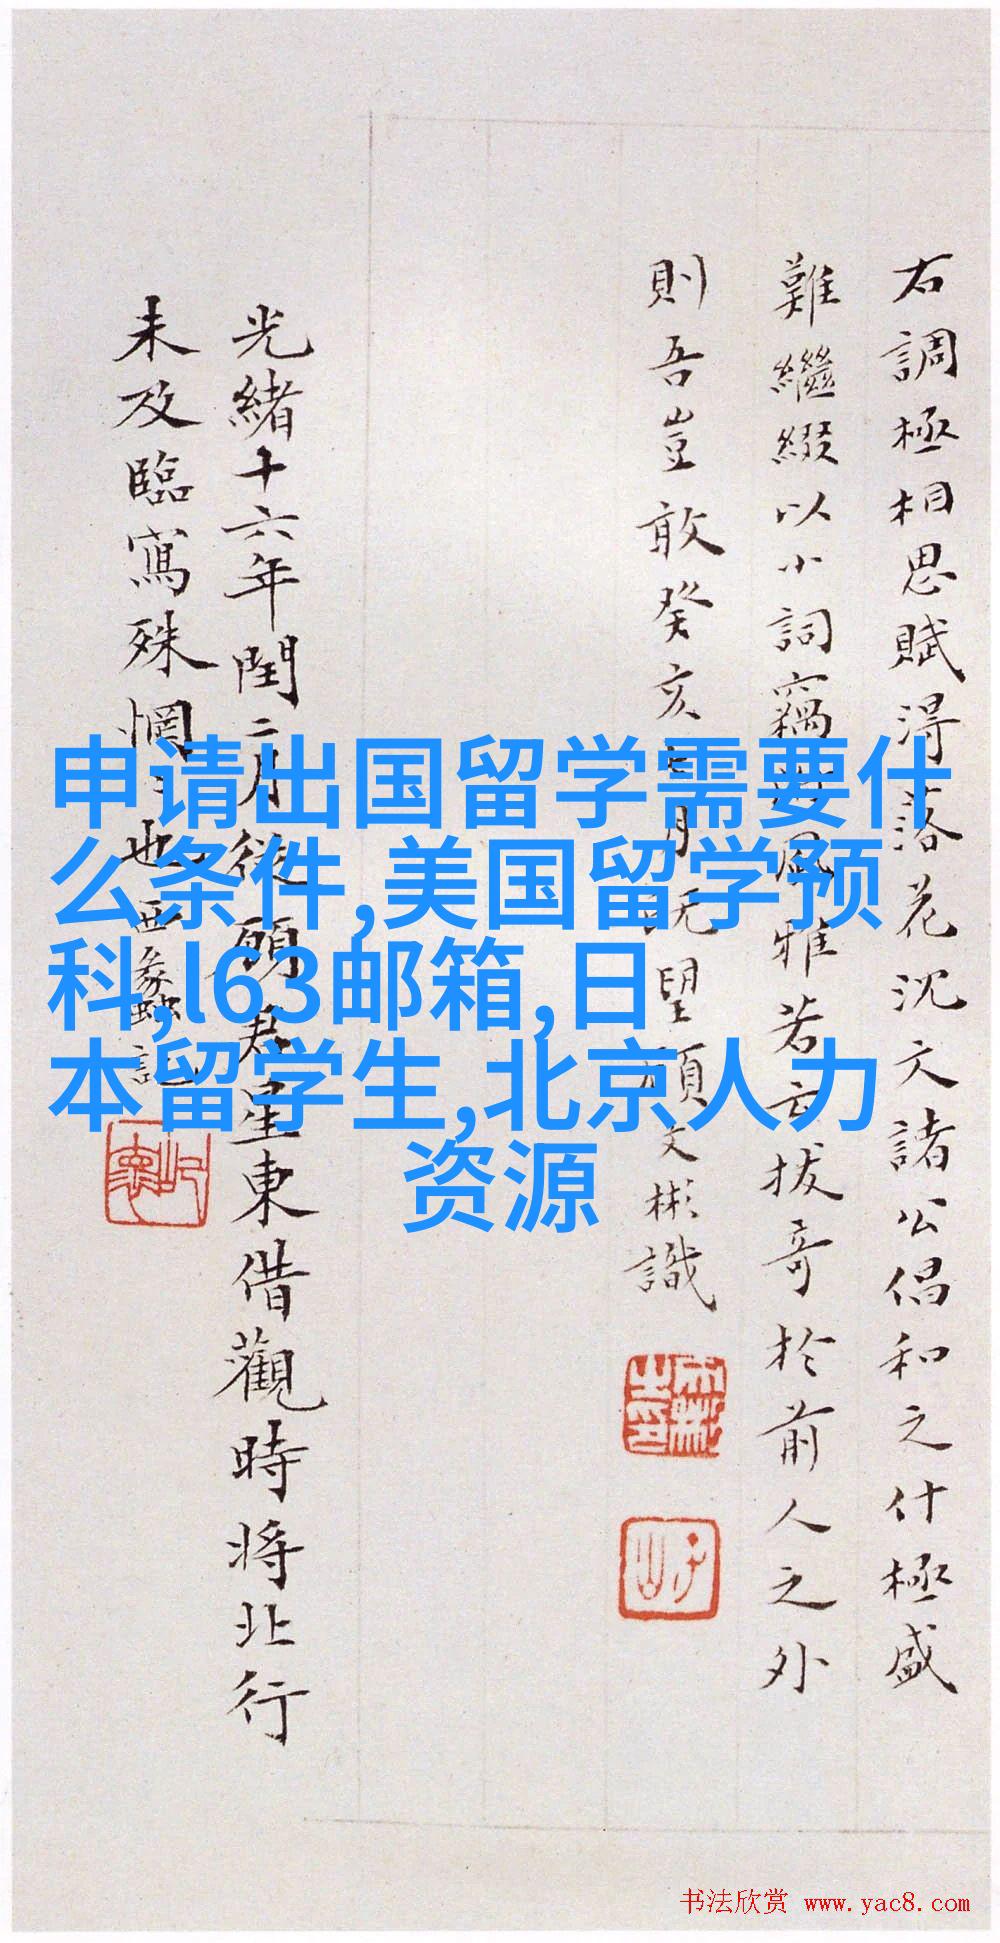 右調極相思賦得落花沈文諸公倡和之什極盛
難繼綴以小詞竊附風雅若云拔奇於前人之外
則吾豈敢癸亥七月既望顧文彬識
光緒十六年閏二月從顧君星東借觀時將北行
未及臨寫殊惘也西蠡記
申请出国留学需要什
么条件,美国留学预
科,l63邮箱,日
本留学生,北京人力
资源
书法欣赏 www.yac8.com